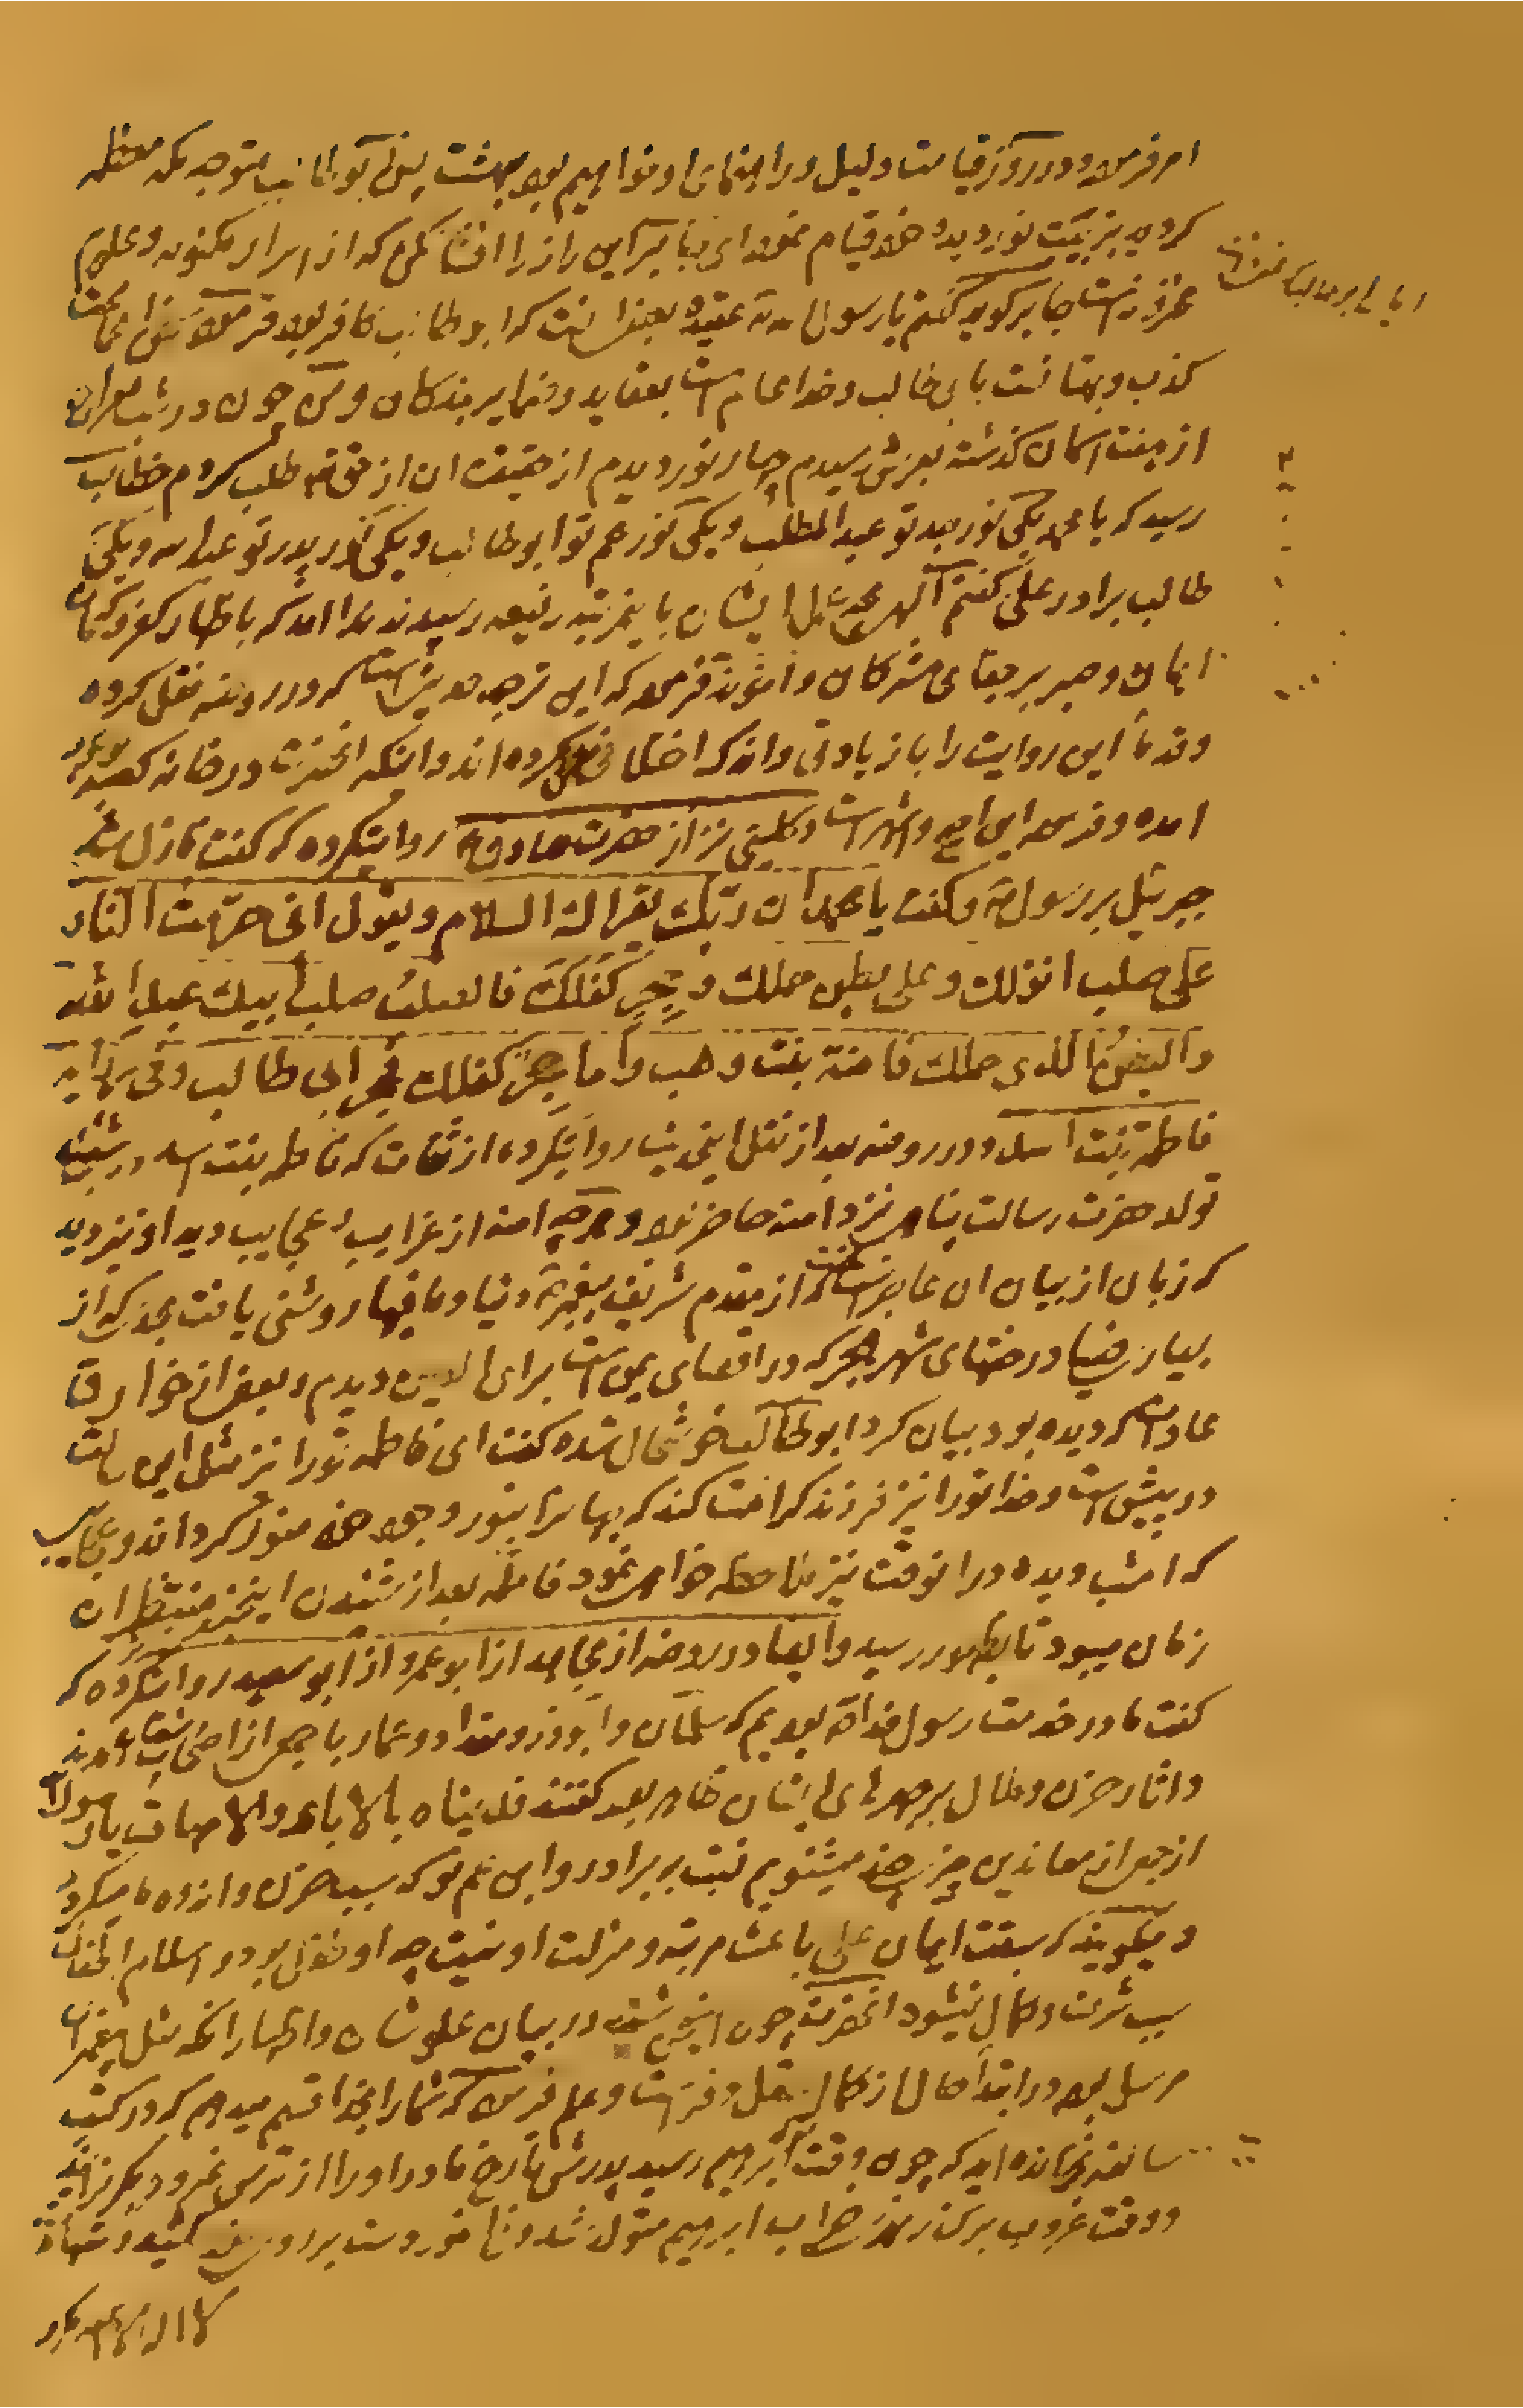 امر فرمود و در روز قیامت دلیل و راهنمای او خواهیم بود بهشت پس ابوطالب متوجه مکه معظمه
گردید بتربیت نور دیده خود قیام نمود ای جابر این راز را افشا مکن که از اسرار مکنونه و علوم
مخزونه است جابر گوید گفتم یا رسول الله عقیده بعضی انست که ابوطالب کافر بود فرمود این
کذب و بهتانست بابی طالب و خدا عالم است بعقاید و ضمایر بندکان و من چون در شب معراج
از هفت اسمان کذشته بعرش رسیدم چهار نور دیدم از حقیقت ان از حق تع طلب کردم خطاب
رسید که یا محمد یکی نور جد تو عبد المطلب و یکی نور عم تو ابوطالب و یکی نور پدر تو عبد الله و یکی
طالب برادر علی گفتم الهی بچه عمل ایشان باین مرتبه رفیعه رسیدند ندا امد که باظهار کفر و کتمان
ایمان و صبر بر جفای مشرکان و اخوند فرموده که این ترجمه حدیثی است که در روضه نقل کرده
و قدما این روایت را با زیادتی و اندک اختلافی نقل کرده اند و اینکه انحضرت در خانه کعبه بوجود
امده و فرموده این اصح و اشهر است و کلینی نیز از حضرت صادق ع روایتکرده که گفت نازل شد
جبرئیل بر رسول ص و گفت یا محمد ان ربک یقرالک السلام و یقول انی حرمت النار
علی صلب انزلک و علی بطن حملک و حجر کفلک فالصلب صلب ابیک عبد الله
والبطن الذی حملک فامنة بنت وهب واما حجر کفلک فحجر ابی طالب و فی روایة
فاطمة بنت اسد و در روضه بعد از نقل اینحدیث روایتکرده از ثقات که فاطمه بنت اسد در شب
تولد حضرت رسالت پناه نزد امنه حاضر بود و هرچه امنه از غرایب و عجایب دید او نیز دید
که زبان از بیان ان عاجز است گفت از مقدم شریف پیغمبر ص دنیا و مافیها روشنی یافت بحدی که از
بسیاری ضیا درختهای شهر هجر که در اقصای یمن است برای العین دیدم و بعضی از خوارق
عادات که دیده بود بیان کرد ابوطالب خوشحال شده گفت ای فاطمه تو را نیز مثل این حالت
در پیش است و خدا تو را نیز فرزند کرامت کند که جهان را بنور وجود خود منور گرداند و عجایب
که امشب دیده در انوقت نیز ملاحظه خواهی نمود فاطمه بعد از شنیدن اینخبر منتظر ان
زمان میبود تا بظهور رسید و ایضا در روضه از مجاهد از ابو عمرو از ابو سعید روایتکرده که
گفت ما در خدمت رسول خدا ص بودیم که سلمان و ابوذر و مقداد و عمار با جمعی از اصحاب امدند
و اثار حزن و ملال بر چهره های ایشان ظاهر بود گفتند فدیناه بالاباء والامهات یا رسول الله
از جمعی از معاندین چیزی چند میشنویم نسبت ببرادر و ابن عم تو که سبب حزن و اندوه ما میگردد
و میگویند که سبقت ایمان علی باعث مرتبه و منزلت او نیست چه او طفل بود و اسلام اطفال
سبب شرف و کمال نیشود انحضرت چون این شنید در بیان علو شان و اظهار انکه مثل پیغمبران
مرسل بود در ابتدا حال از کمال عقل و فراست و علم فرمود که شما را بخدا قسم میدهم که در کتب
سالفه نخوانده اید که چون وقت ابراهیم رسید پدرش تارخ مادر او را از ترس نمرود بگریزانید
و وقت غروب بر کنار نهر ابراهیم متولد شد و دست بر رو و سر خود کشید و شهادة